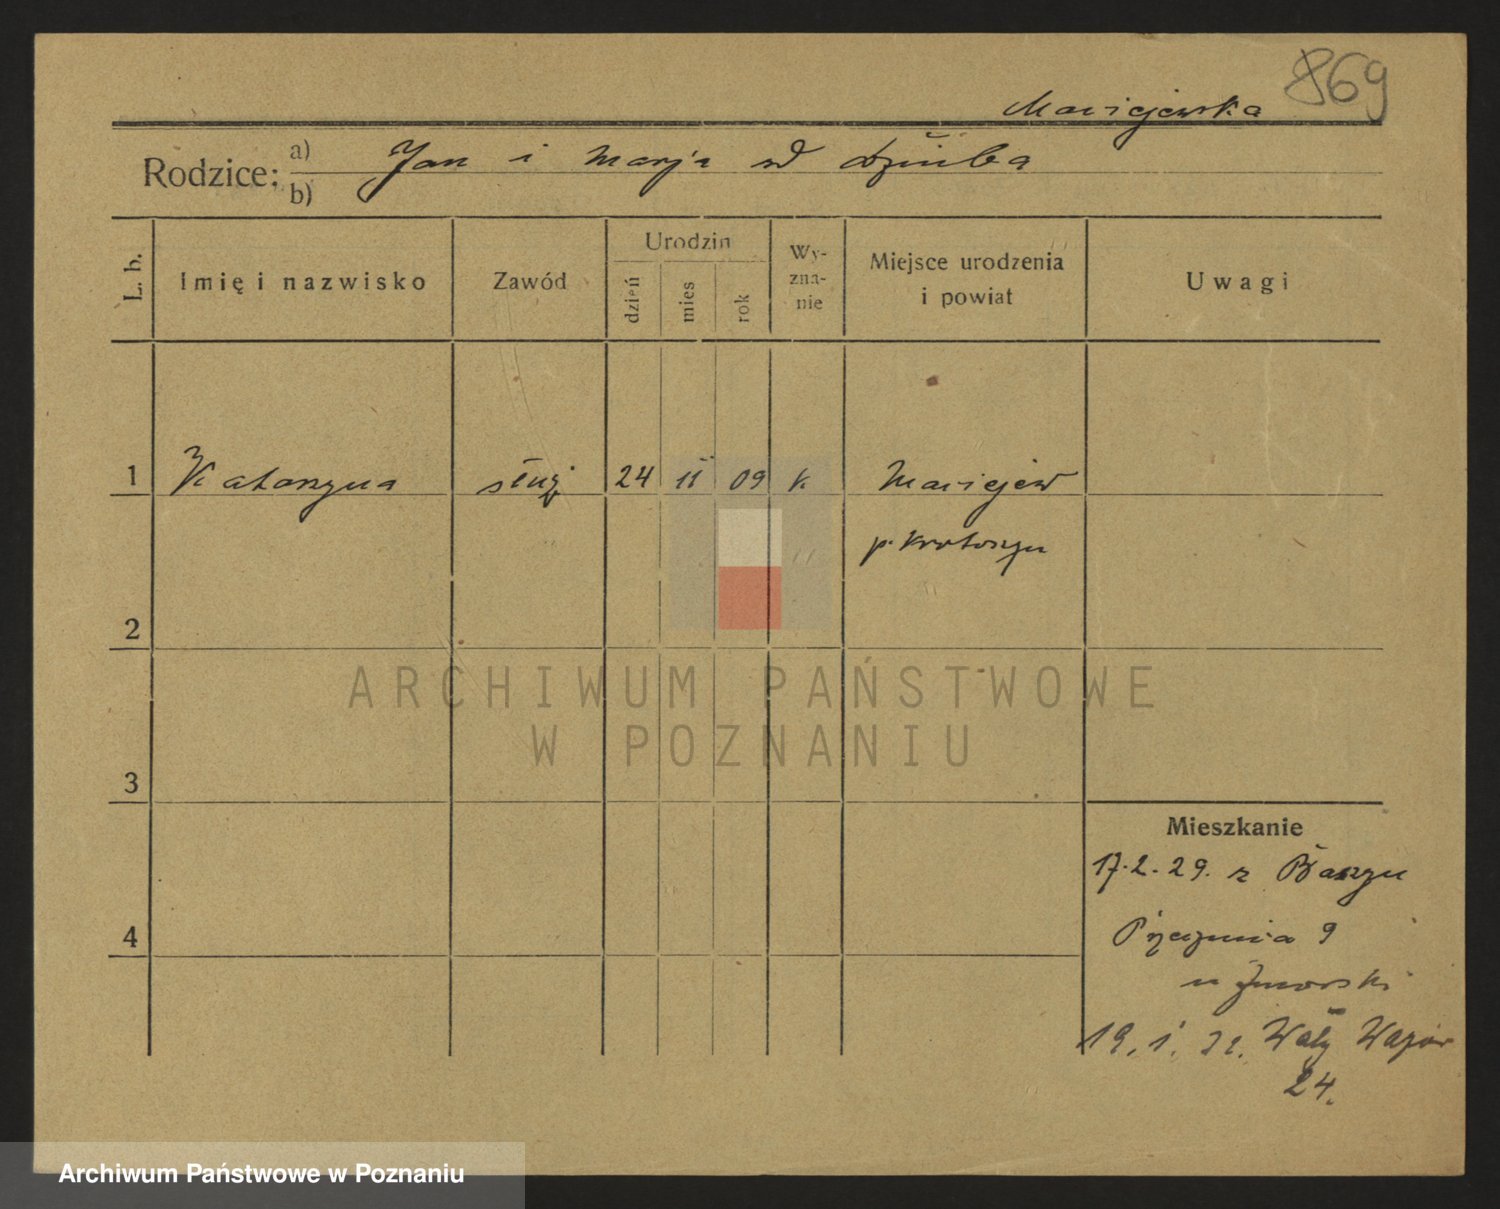 869
Maciejewska
Rodzice: a) Jan i Marja zd Dziuba
b)
L. b.
Imię i nazwisko
Zawód
Urodzin
dzień
mies
rok
Wy-
zna-
nie
Miejsce urodzenia
i powiat
Uwagi
1 Katarzyna służ 24 11 09 k Maciejew
p. Krotoszyn
2
3
4
Mieszkanie
17.2.29. z
9
u
19. 1. Wały
24.
ARCHIWUM PAŃSTWOWE
W POZNANIU
Archiwum Państwowe w Poznaniu